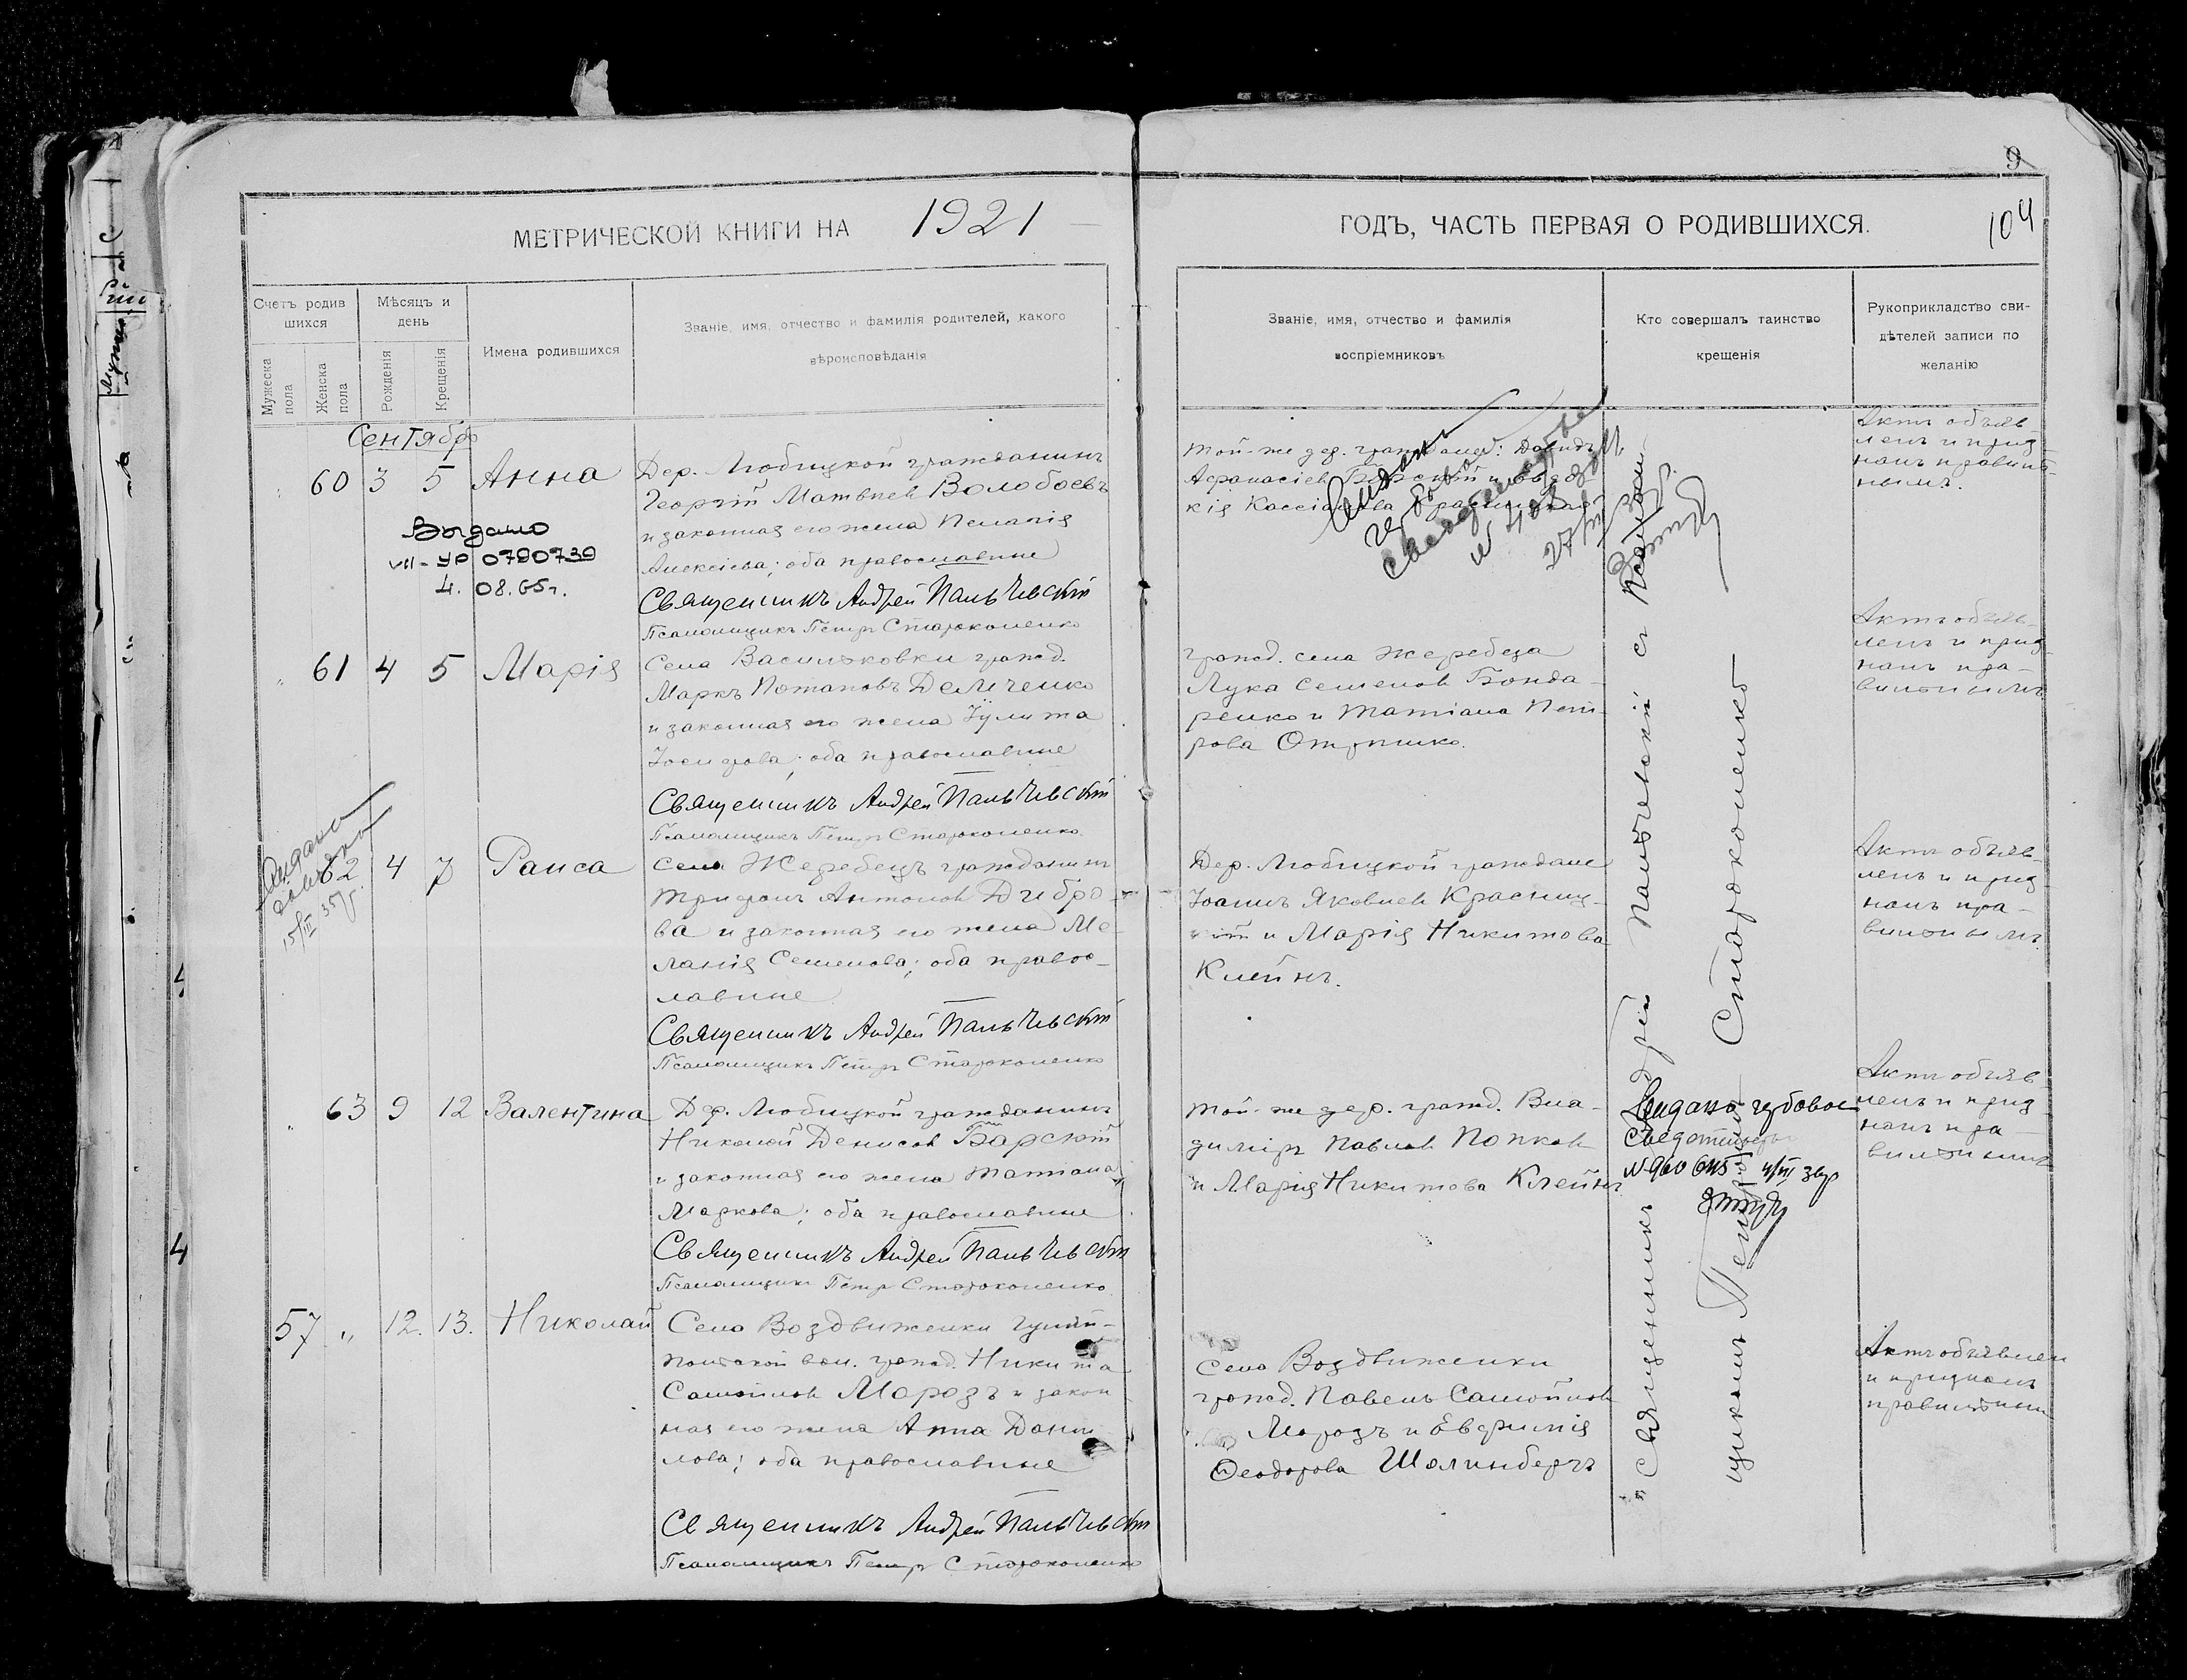 9
104
МЕТРИЧЕСКОЙ КНИГИ НА 1921
ГОДЪ, ЧАСТЬ ПЕРВАЯ О РОДИВШИХСЯ.
Счетъ родив
шихся
Мѣсяцъ и
день
Мужеска
пола
Женска
пола
Рожденія
Крещенія
Имена родившихся
Званіе, имя, отчество и фамилія родителей, какого
вѣроисповѣданія
Званіе, имя, отчество и фамилія
воспріемниковъ
Кто совершалъ таинство
крещенія
Рукоприкладство сви-
дѣтелей записи по
желанію
Сентябрь
60 3 5 Анна
Дер. Любицкой гражданинъ
Георгій Матвѣевъ Волобоевъ
и законная его жена Пелагія
Алексіева; оба православные
Священникъ Андрей
Псаломщикъ Петръ Староконенко
Выдано
VII-УР 0790739
4. 08. 65г.
той-же дер. граждане: Давидъ
Афанасіевъ
кія
27/III
Актъ объяв-
ленъ и приз
нанъ правиль-
нымъ.
61 4 5 Марія
Села Васильковки гражд.
Маркъ Потаповъ Демченко
и законная его жена Іулита
Іосифова; оба православные
Священникъ Андрей
Псаломщикъ Петръ Староконенко
гражд. села Жеребца
Лука Семеновъ Бонда-
ренко и Татіана Пет-
рова
Актъ объяв-
ленъ и приз
нанъ пра-
вильнымъ.
15/III 35г.
62 4 7 Раиса
Села Жеребецъ гражданинъ
Трифонъ Антоновъ Дибро-
ва и законная его жена Ме-
ланія Семенова; оба правос-
лавные
Священникъ Андрей
Псаломщикъ Петръ Староконенко
Дер. Любицкой граждане
Іоаннъ Яковлевъ Красниц-
кій и Марія Никитова
Клейнъ.
Актъ объяв-
ленъ и приз
нанъ пра-
вильнымъ.
63 9 12 Валентина
Дер. Любицкой гражданинъ
Николай Денисовъ Барскій
и законная его жена Татіана
Маркова; оба православные
Священникъ Андрей
Псаломщикъ Петръ Староконенко
той-же дер. гражд. Вла-
диміръ Павловъ Попковъ
и Марія Никитова Клейнъ
Актъ объяв-
ленъ и приз
нанъ пра-
вильнымъ
57 " 12. 13. Николай
Села Воздвиженки Гуляй-
польской вол. гражд. Никита
Самойловъ Морозъ и закон
ная его жена Анна Дании
лова; оба православные
Священникъ Андрей
Псаломщикъ Петръ Староконенко
Села Воздвиженки
гражд. Павелъ Самойловъ
Морозъ и Евфимія
Ѳеодорова Шолинбергъ
Актъ объявленъ
и признанъ
правильнымъ
Священникъ
Староконенко